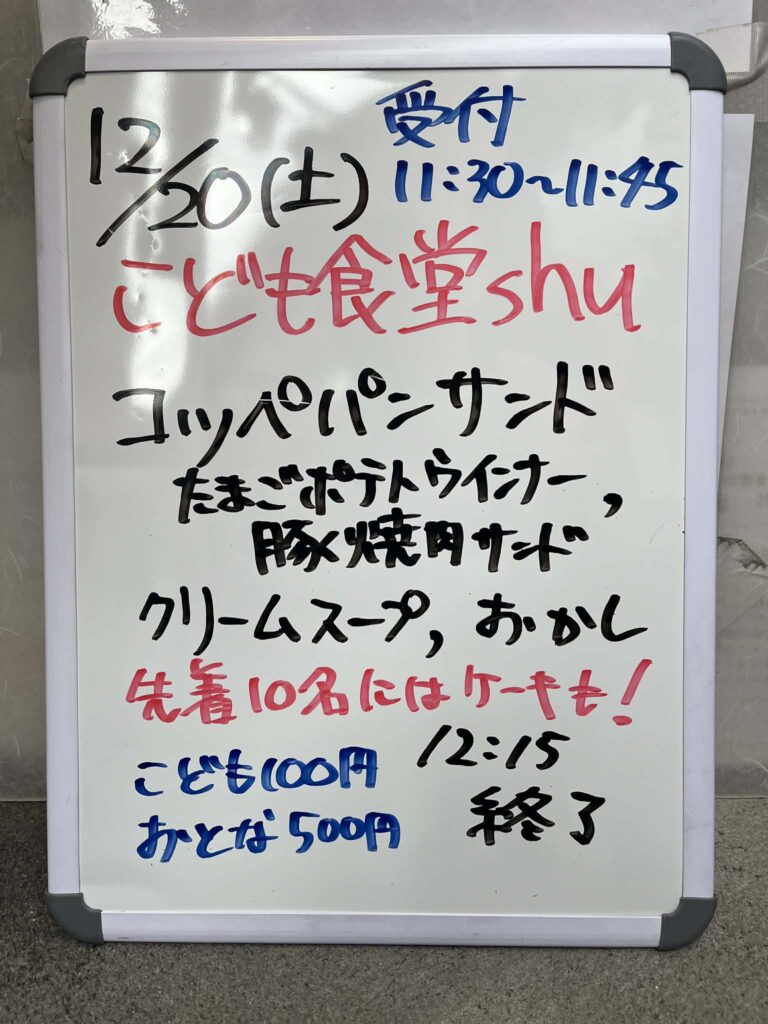 12/20(土)
受付
11:30~11:45
こども食堂shu
コッペパンサンド
たまごポテトウインナー,
豚焼肉サンド
クリームスープ,おかし
先着10名にはケーキも!
こども100円
おとな500円
12:15
終了